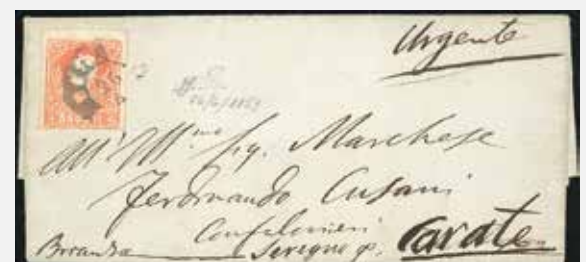 Urgente
16/6/1859
All' Ill.mo Sig. Marchese
Ferdinando Cusani
Confalonieri
Brianza Seregno p. Carate